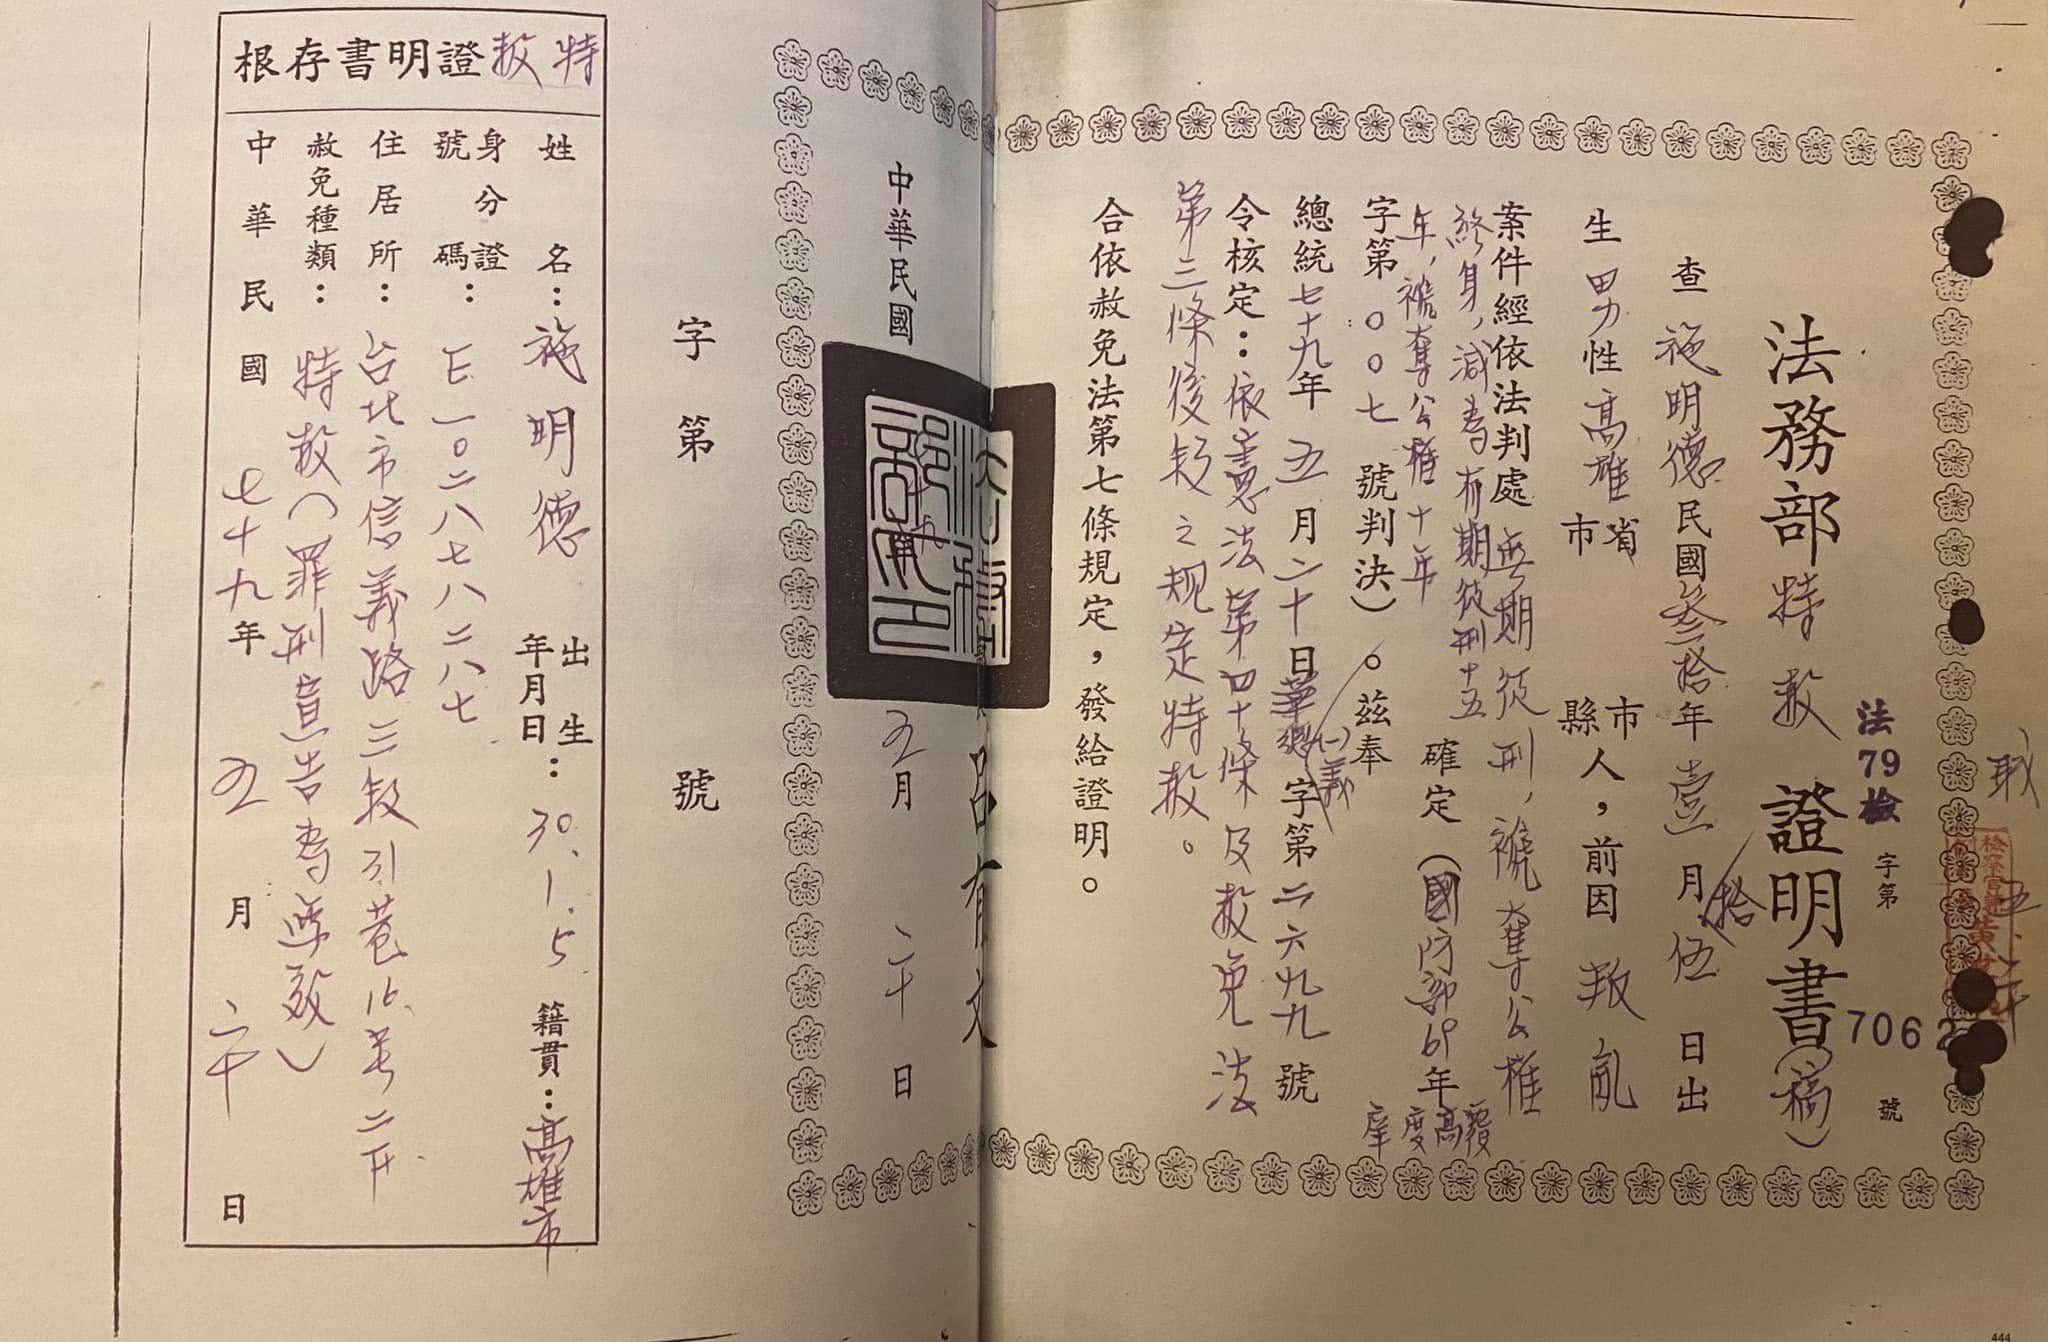 法79檢字第7062號
法務部特赦證明書(稿)
查施明德民國叁拾年壹月伍日出
拾
生男性高雄省市 市縣人，前因叛亂
案件經依法判處無期徒刑，褫奪公權
終身，減為有期徒刑十五
年，褫奪公權十年 確定（國防部69年
覆高度庠
字第〇〇七號判決）。茲奉
總統七十九年五月二十日華總(一)義字第二六九九號
令核定：依憲法第四十條及赦免法
第三條後段之規定特赦。
合依赦免法第七條規定，發給證明。
呂有文
中華民國七十九年五月二十日
字第 號
特赦證明書存根
姓名：施明德 出生年月日：30.1.5 籍貫：高雄市
身分證號碼：E一〇二八七八二八七
住居所：台北市信義路三段31巷16号二F
赦免種類：特赦（罪刑宣告為無效）
中華民國七十九年五月二十日
444